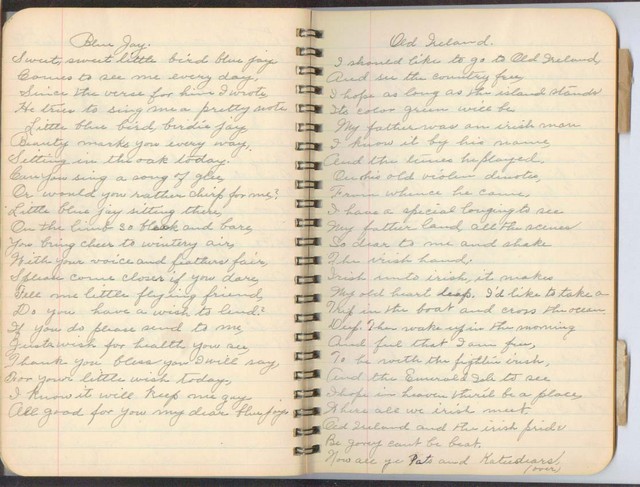 Blue Jay.
Sweet, sweet little bird blue jay
Comes to see me every day,
Since the verse for him I wrote
He tries to sing me a pretty note
Little blue bird, birdie jay
Beauty marks you every way,
Sitting in the oak today.
Can you sing a song of glee,
Or would you rather chirp for me?
Little blue jay sitting there,
On the limb so bleak and bare,
You bring cheer to wintery air,
With your voice and feathers fair,
please come closer if you dare,
Tell me little flying friend,
Do you have a wish to lend?
If you do please send to me,
Just a wish for health, you see,
Thank you bless you I will say,
For your little wish today,
I know it will keep me gay
All good for you my dear blue jay.
Old Ireland.
I should like to go to Old Ireland,
And see the country free,
I hope as long as the island stands
Its color green will be
My father was an irish man
I know it by his name
And the tunes he played,
On his old violin denotes,
From whence he came.
I have a special longing to see
My father land, all the scenes
So dear to me and shake
The irish hand;
Irish unto irish, it makes
My old heart leap. I'd like to take a
Trip in the boat and cross the ocean
Deep. Then wake up in the morning
And feel that I am free,
To be with the fightin irish,
And the Emerald Isle to see
I hope in heaven ther'll be a place
Where all we irish meet.
Old Ireland and the irish pride
Be gorry cant be beat.
Now all ye Pats and Katies dears
over